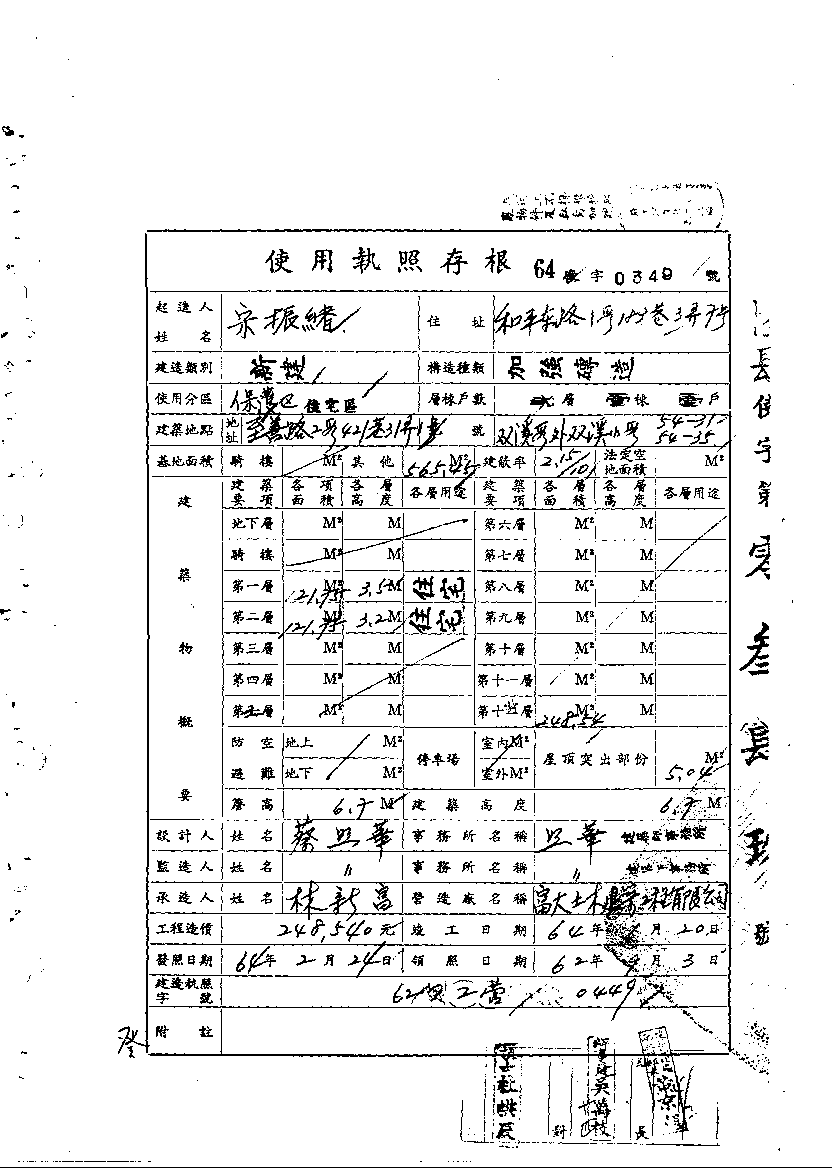 使用執照存根 64 字 0349 號
起造人姓名 宗振緒 住址
建造類別 新建 構造種類 加強磚造
使用分區 保護區 住宅區 層棟戶數 層 棟 戶
建築地點 地址 至善路2段421巷31弄1號 號 双溪段外双溪小段 54-31 54-35
基地面積 騎樓 M² 其他 565.45 M² 建蔽率 2.15/10 法定空地面積 M²
建築物概要 建築要項 各項面積 各層高度 各層用途 建築要項 各層面積 各層高度 各層用途
地下層 M² M 第六層 M² M
騎樓 M² M 第七層 M² M
第一層 121.75 M² 3.5 M 住宅 第八層 M² M
第二層 121.75 M² 3.2 M 住宅 第九層 M² M
第三層 M² M 第十層 M² M
第四層 M² M 第十一層 M² M
第五層 M² M 第十二層 M² M
248.54
防空避難 地上 M² 地下 M² 停車場 室內 M² 室外 M² 屋頂突出部份 5.04 M²
簷高 6.7 M 建築高度 6.7 M
設計人 姓名 蔡照華 事務所名稱 照華
監造人 姓名 〃 事務所名稱 〃
承造人 姓名 林新富 營造廠名稱 富大土木建築工程有限公司
工程造價 248,540元 竣工日期 64年 月20日
發照日期 64年2月24日 領照日期 62年 月3日
建造執照字號 62 工營 0449
附註
長使字第零叁肆玖號